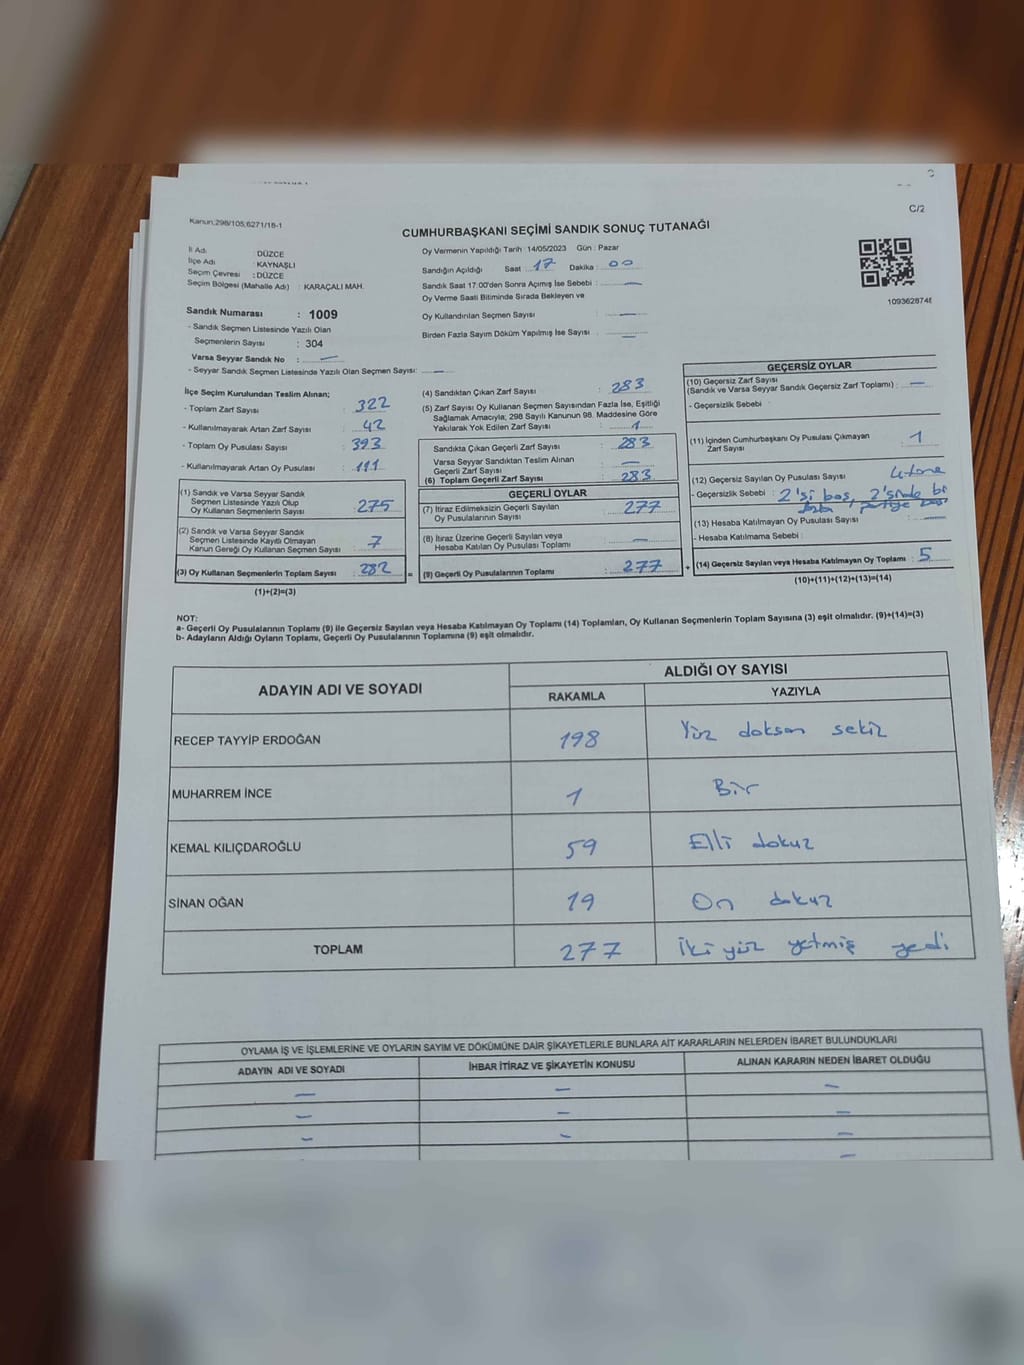 C/2
Kanun;298/105;6271/18-1
CUMHURBAŞKANI SEÇİMİ SANDIK SONUÇ TUTANAĞI
İl Adı : DÜZCE
İlçe Adı : KAYNAŞLI
Seçim Çevresi : DÜZCE
Seçim Bölgesi (Mahalle Adı) : KARAÇALI MAH.
Oy Vermenin Yapıldığı Tarih : 14/05/2023 Gün : Pazar
Sandığın Açıldığı Saat : 17 Dakika : 00
Sandık Saat 17.00'den Sonra Açımış İse Sebebi : —
Oy Verme Saati Bitiminde Sırada Bekleyen ve
Oy Kullandırılan Seçmen Sayısı : —
Birden Fazla Sayım Döküm Yapılmış İse Sayısı : —
Sandık Numarası : 1009
- Sandık Seçmen Listesinde Yazılı Olan
Seçmenlerin Sayısı : 304
Varsa Seyyar Sandık No : —
- Seyyar Sandık Seçmen Listesinde Yazılı Olan Seçmen Sayısı: —
İlçe Seçim Kurulundan Teslim Alınan;
- Toplam Zarf Sayısı : 322
- Kullanılmayarak Artan Zarf Sayısı : 42
- Toplam Oy Pusulası Sayısı : 393
- Kullanılmayarak Artan Oy Pusulası : 111
(1) Sandık ve Varsa Seyyar Sandık
Seçmen Listesinde Yazılı Olup
Oy Kullanan Seçmenlerin Sayısı : 275
(2) Sandık ve Varsa Seyyar Sandık
Seçmen Listesinde Kayıtlı Olmayan
Kanun Gereği Oy Kullanan Seçmen Sayısı : 7
(3) Oy Kullanan Seçmenlerin Toplam Sayısı : 282
(1)+(2)=(3)
(4) Sandıktan Çıkan Zarf Sayısı : 283
(5) Zarf Sayısı Oy Kullanan Seçmen Sayısından Fazla İse, Eşitliği
Sağlamak Amacıyla, 298 Sayılı Kanunun 98. Maddesine Göre
Yakılarak Yok Edilen Zarf Sayısı : 1
Sandıkta Çıkan Geçerli Zarf Sayısı : 283
Varsa Seyyar Sandıktan Teslim Alınan
Geçerli Zarf Sayısı : —
(6) Toplam Geçerli Zarf Sayısı : 283
GEÇERLİ OYLAR
(7) İtiraz Edilmeksizin Geçerli Sayılan
Oy Pusulalarının Sayısı : 277
(8) İtiraz Üzerine Geçerli Sayılan veya
Hesaba Katılan Oy Pusulası Toplamı : —
= (9) Geçerli Oy Pusulalarının Toplamı : 277
1093628746
GEÇERSİZ OYLAR
(10) Geçersiz Zarf Sayısı
(Sandık ve Varsa Seyyar Sandık Geçersiz Zarf Toplamı) : —
- Geçersizlik Sebebi :
(11) İçinden Cumhurbaşkanı Oy Pusulası Çıkmayan
Zarf Sayısı : 1
(12) Geçersiz Sayılan Oy Pusulası Sayısı : 4 tane
- Geçersizlik Sebebi : 2'si boş, 2'sinde bi
(13) Hesaba Katılmayan Oy Pusulası Sayısı : —
- Hesaba Katılmama Sebebi :
+ (14) Geçersiz Sayılan veya Hesaba Katılmayan Oy Toplamı : 5
(10)+(11)+(12)+(13)=(14)
NOT:
a- Geçerli Oy Pusulalarının Toplamı (9) ile Geçersiz Sayılan veya Hesaba Katılmayan Oy Toplamı (14) Toplamları, Oy Kullanan Seçmenlerin Toplam Sayısına (3) eşit olmalıdır. (9)+(14)=(3)
b- Adayların Aldığı Oyların Toplamı, Geçerli Oy Pusulalarının Toplamına (9) eşit olmalıdır.
ADAYIN ADI VE SOYADI ALDIĞI OY SAYISI
RAKAMLA YAZIYLA
RECEP TAYYİP ERDOĞAN 198 Yüz doksan sekiz
MUHARREM İNCE 1 Bir
KEMAL KILIÇDAROĞLU 59 Elli dokuz
SİNAN OĞAN 19 On dokuz
TOPLAM 277 İki yüz yetmiş yedi
OYLAMA İŞ VE İŞLEMLERİNE VE OYLARIN SAYIM VE DÖKÜMÜNE DAİR ŞİKAYETLERLE BUNLARA AİT KARARLARIN NELERDEN İBARET BULUNDUKLARI
ADAYIN ADI VE SOYADI İHBAR İTİRAZ VE ŞİKAYETİN KONUSU ALINAN KARARIN NEDEN İBARET OLDUĞU
— — —
— — —
— — —
—